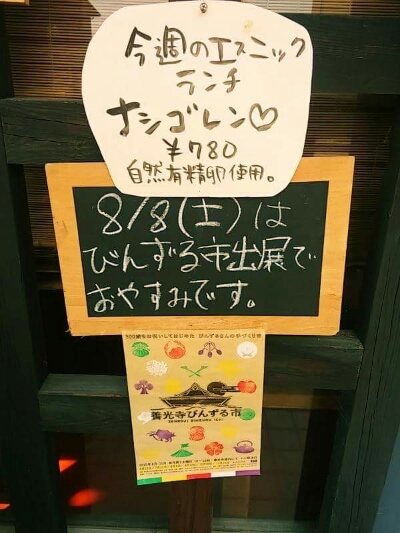 今週のエスニック
ランチ
ナシゴレン♡
¥780
自然有精卵使用。
8/8(土)は
びんずる市出展で
おやすみです。
善光寺びんずる市
ZENKOJI BINZURU ICHI